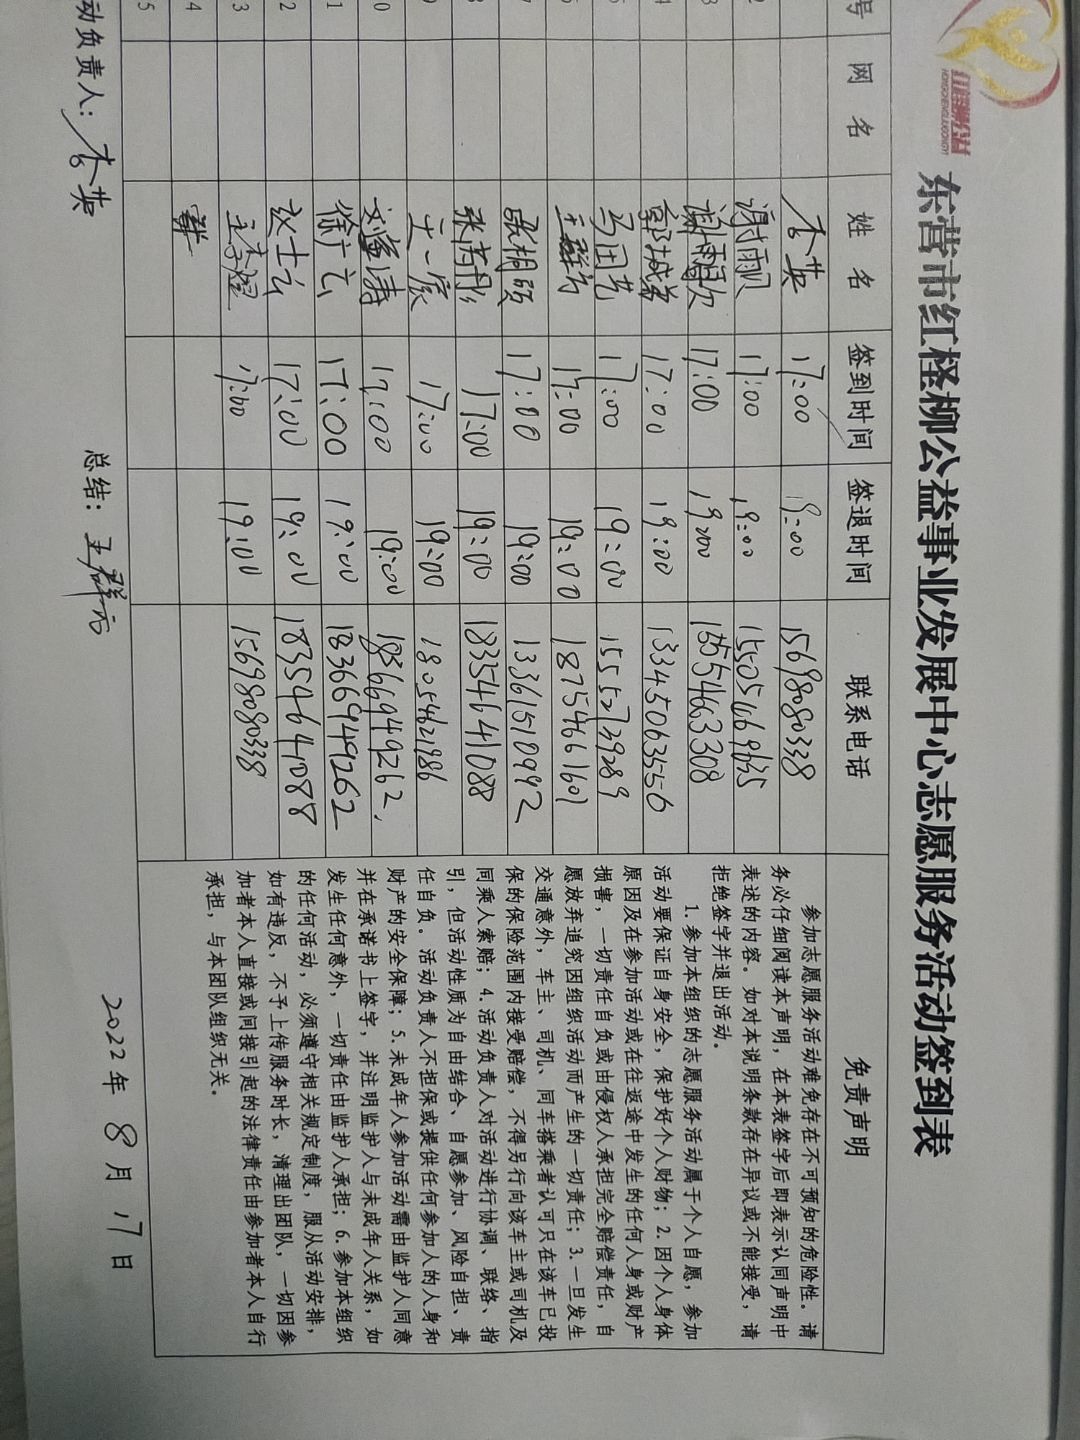 红柽柳公益
HONGCHENGLIUGONGYI
东营市红柽柳公益事业发展中心志愿服务活动签到表
号 网 名 姓 名 签到时间 签退时间 联系电话 免责声明
李英 17:00 19:00 15698080338
2 17:00 19:00
3 17:00 19:00 15554663308
4 17:00 19:00 13345063556
5 17:00 19:00 15552739289
6 王群 17:00 19:00 18754661601
张桐硕 17:00 19:00 13361510992
8 17:00 19:00 18354641088
9 王一宸 17:00 19:00 18054621986
0 17:00 19:00 18366949262
1 徐广云 17:00 19:00 18366949262
2 赵士云 17:00 19:00 18354641088
3 17:00 19:00 15698080338
4
5
参加志愿服务活动难免存在不可预知的危险性。请
务必仔细阅读本声明，在本表签字后即表示认同声明中
表述的内容。如对本说明条款存在异议或不能接受，请
拒绝签字并退出活动。
1.参加本组织的志愿服务活动属于个人自愿，参加
活动要保证自身安全，保护好个人财物；2.因个人身体
原因及在参加活动或在往返途中发生的任何人身或财产
损害，一切责任自负或由侵权人承担完全赔偿责任，自
愿放弃追究因组织活动而产生的一切责任；3.一旦发生
交通意外，车主、司机、同车搭乘者认可只在该车已投
保的保险范围内接受赔偿，不得另行向该车主或司机及
同乘人索赔；4.活动负责人对活动进行协调、联络、指
引，但活动性质为自由结合、自愿参加、风险自担、责
任自负。活动负责人不担保或提供任何参加人的人身和
财产的安全保障；5.未成年人参加活动需由监护人同意
并在承诺书上签字，并注明监护人与未成年人关系，如
发生任何意外，一切责任由监护人承担；6.参加本组织
的任何活动，必须遵守相关规定制度，服从活动安排，
如有违反，不予上传服务时长，清理出团队，一切因参
加者本人直接或间接引起的法律责任由参加者本人自行
承担，与本团队组织无关。
动负责人：李英 总结：王群 2022年 8月 17日